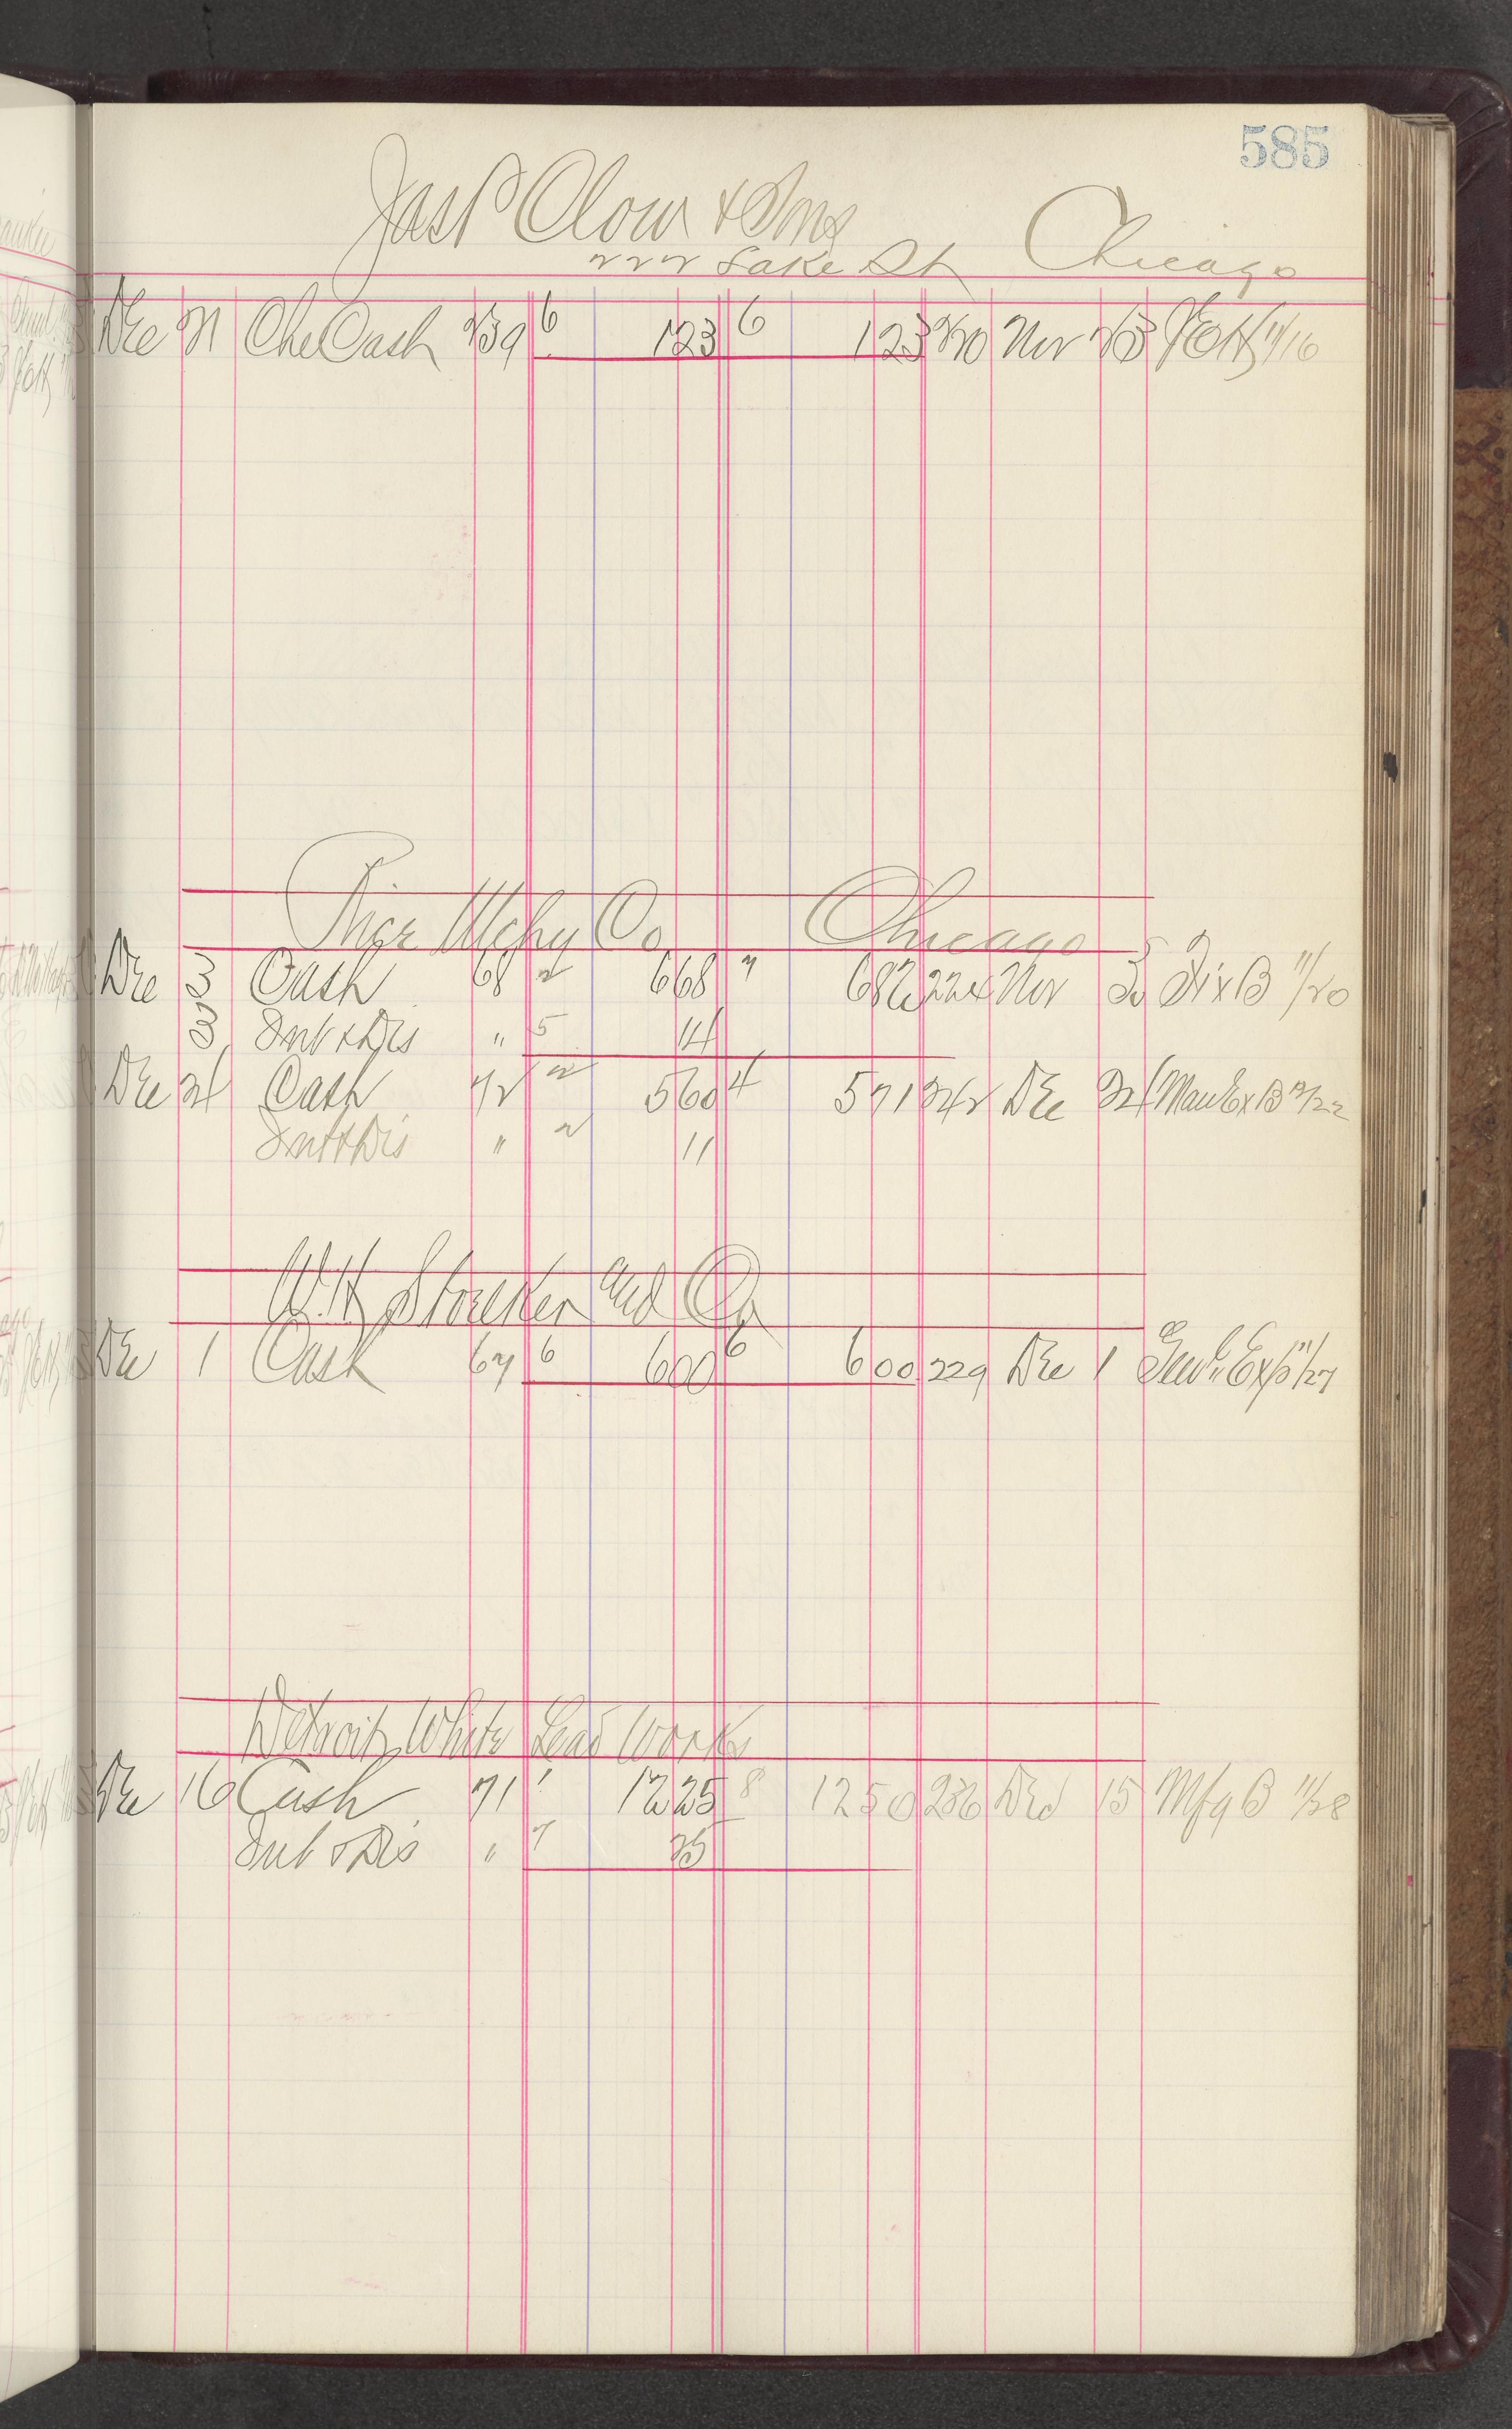 585
Jas P Clow & Sons
222 Lake St Chicago
Dec 21 Cash 6 123 6 123 Nov 11/16
Mchy Co Chicago
Dec 3 Cash 68 2 668 7 682 224 Nov 30 Fix B 11/20
3 Int & Dis " 5 14
Dec 24 Cash 72 2 560 4 571 242 Dec 24 Man Ex B 12/22
Int & Dis " 2 11
W. H. and Co
Dec 1 Cash 67 6 600 6 600 229 Dec 1 11/27
Detroit White Lead Works
Dec 16 Cash 71 1 1225 8 1250 236 Dec 15 Mfg B 11/28
Int & Dis " 7 25